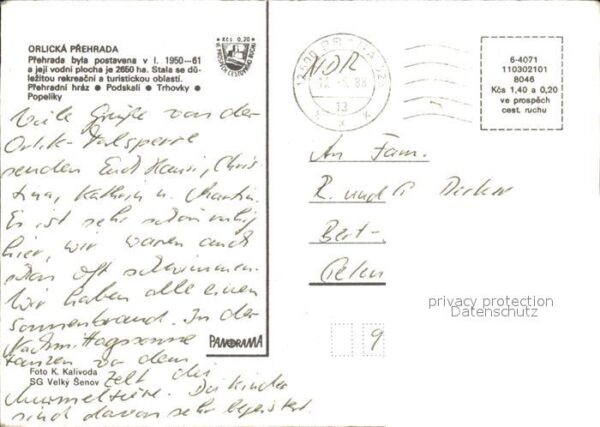 ORLICKÁ PŘEHRADA
Přehrada byla postavena v l. 1950—61
a její vodní plocha je 2650 ha. Stala se dů-
ležitou rekreační a turistickou oblastí.
Přehradní hráz ● Podskalí ● Trhovky ●
Popelíky
Kčs 0,20
VE PROSPĚCH CESTOVNÍHO RUCHU
Viele Grüße von der
Orlik-Talsperre
senden Euch Hansi, Chris-
tina, Kathrin u. Martin.
Es ist sehr schön ruhig
hier, wir waren auch
schon oft schwimmen.
Wir haben alle einen
Sonnenbrand. In der
Nachmittagssonne
tanzen vor dem
Zelt die
Murmeltiere. Die Kinder
sind davon sehr begeistert.
Foto K. Kalivoda
SG Velký Šenov
PANORAMA
PRAHA
88
13
NDR
6-4071
110302101
8046
Kčs 1,40 a 0,20
ve prospěch
cest. ruchu
An Fam.
R. und G Decker
Bert-
9
privacy protection
Datenschutz